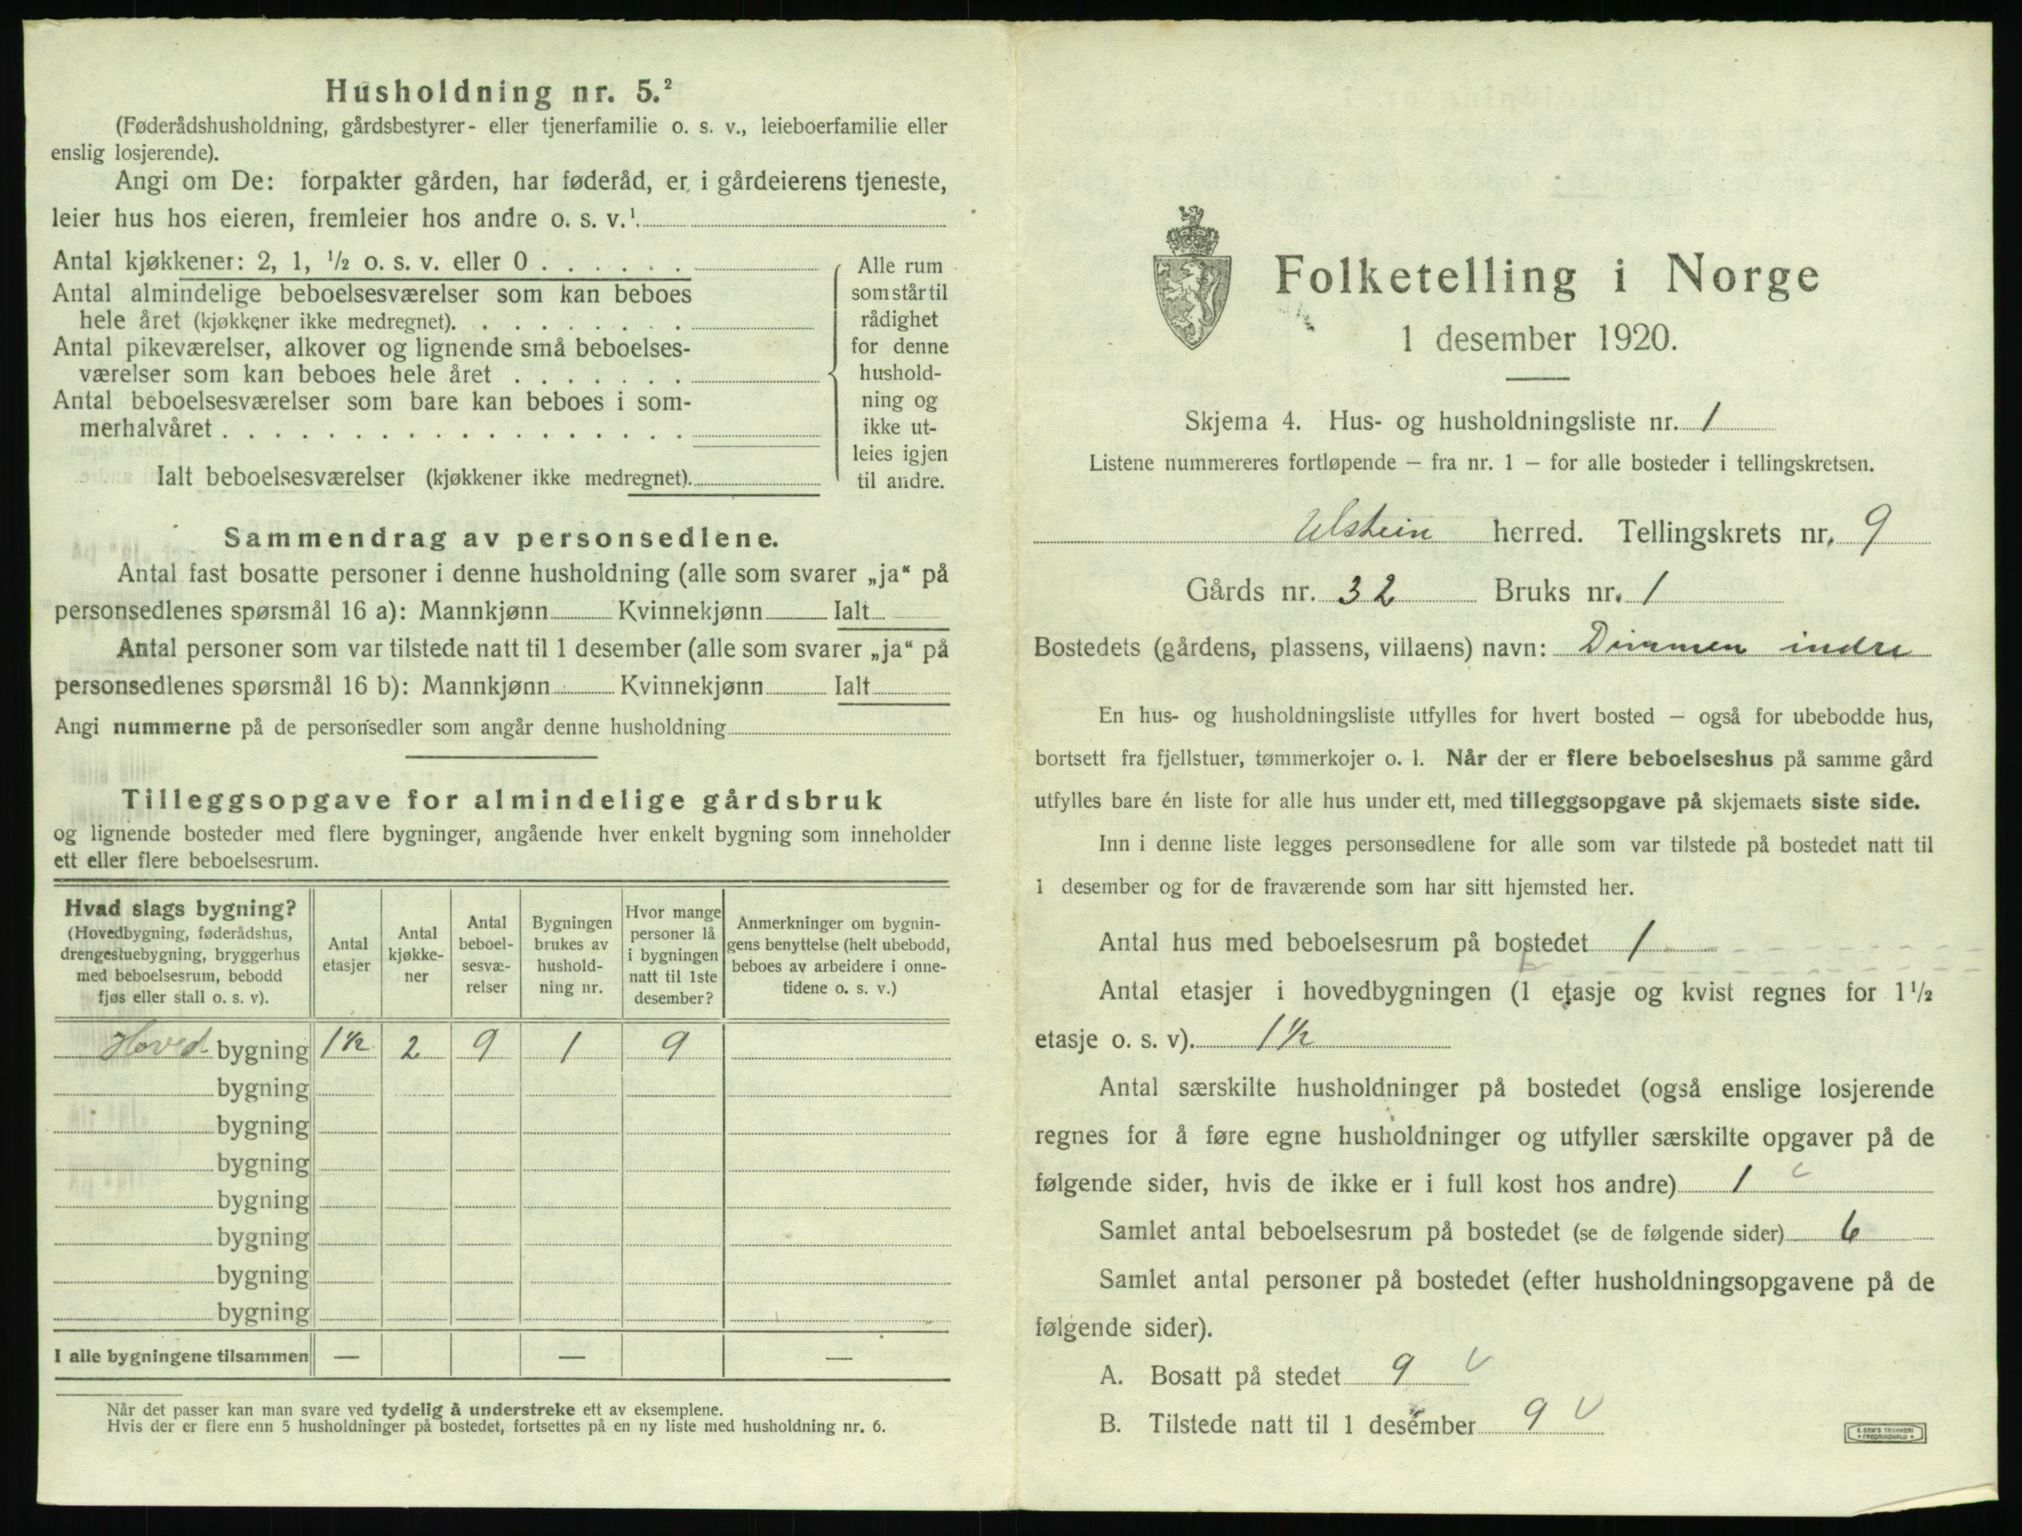 Husholdning nr. 5.²
(Føderådshusholdning, gårdsbestyrer- eller tjenerfamilie o. s. v., leieboerfamilie eller
enslig losjerende).
Angi om De: forpakter gården, har føderåd, er i gårdeierens tjeneste,
leier hus hos eieren, fremleier hos andre o. s. v.¹
Antal kjøkkener: 2, 1, ½ o. s. v. eller 0 . . . . . .
Antal almindelige beboelsesværelser som kan beboes
hele året (kjøkkener ikke medregnet). . . . . . . . .
Antal pikeværelser, alkover og lignende små beboelses-
værelser som kan beboes hele året . . . . . . .
Antal beboelsesværelser som bare kan beboes i som-
merhalvåret . . . . . . . . . . . . . . . . . .
Ialt beboelsesværelser (kjøkkener ikke medregnet).
Alle rum
som står til
rådighet
for denne
hushold-
ning og
ikke ut-
leies igjen
til andre.
Sammendrag av personsedlene.
Antal fast bosatte personer i denne husholdning (alle som svarer „ja“ på
personsedlenes spørsmål 16 a): Mannkjønn Kvinnekjønn Ialt
Antal personer som var tilstede natt til 1 desember (alle som svarer „ja“ på
personsedlenes spørsmål 16 b): Mannkjønn Kvinnekjønn Ialt
Angi nummerne på de personsedler som angår denne husholdning
Tilleggsopgave for almindelige gårdsbruk
og lignende bosteder med flere bygninger, angående hver enkelt bygning som inneholder
ett eller flere beboelsesrum.
Hvad slags bygning?
(Hovedbygning, føderådshus,
drengestuebygning, bryggerhus
med beboelsesrum, bebodd
fjøs eller stall o. s. v).
Antal
etasjer
Antal
kjøkke-
ner
Antal
beboel-
sesvæ-
relser
Bygningen
brukes av
hushold-
ning nr.
Hvor mange
personer lå
i bygningen
natt til 1ste
desember?
Anmerkninger om bygnin-
gens benyttelse (helt ubebodd,
beboes av arbeidere i onne-
tidene o. s. v.)
Hoved bygning 1½ 2 9 1 9
bygning
bygning
bygning
bygning
bygning
bygning
bygning
I alle bygningene tilsammen — — —
Når det passer kan man svare ved tydelig å understreke ett av eksemplene.
Hvis der er flere enn 5 husholdninger på bostedet, fortsettes på en ny liste med husholdning nr. 6.
Folketelling i Norge
1 desember 1920.
Skjema 4. Hus- og husholdningsliste nr. 1
Listene nummereres fortløpende – fra nr. 1 – for alle bosteder i tellingskretsen.
Ulstein herred. Tellingskrets nr. 9
Gårds nr. 32 Bruks nr. 1
Bostedets (gårdens, plassens, villaens) navn: Dimmen indre
En hus- og husholdningsliste utfylles for hvert bosted – også for ubebodde hus,
bortsett fra fjellstuer, tømmerkojer o. l. Når der er flere beboelseshus på samme gård
utfylles bare én liste for alle hus under ett, med tilleggsopgave på skjemaets siste side.
Inn i denne liste legges personsedlene for alle som var tilstede på bostedet natt til
1 desember og for de fraværende som har sitt hjemsted her.
Antal hus med beboelsesrum på bostedet 1
Antal etasjer i hovedbygningen (1 etasje og kvist regnes for 1½
etasje o. s. v). 1½
Antal særskilte husholdninger på bostedet (også enslige losjerende
regnes for å føre egne husholdninger og utfyller særskilte opgaver på de
følgende sider, hvis de ikke er i full kost hos andre) 1
Samlet antal beboelsesrum på bostedet (se de følgende sider) 6
Samlet antal personer på bostedet (efter husholdningsopgavene på de
følgende sider).
A. Bosatt på stedet 9
B. Tilstede natt til 1 desember 9